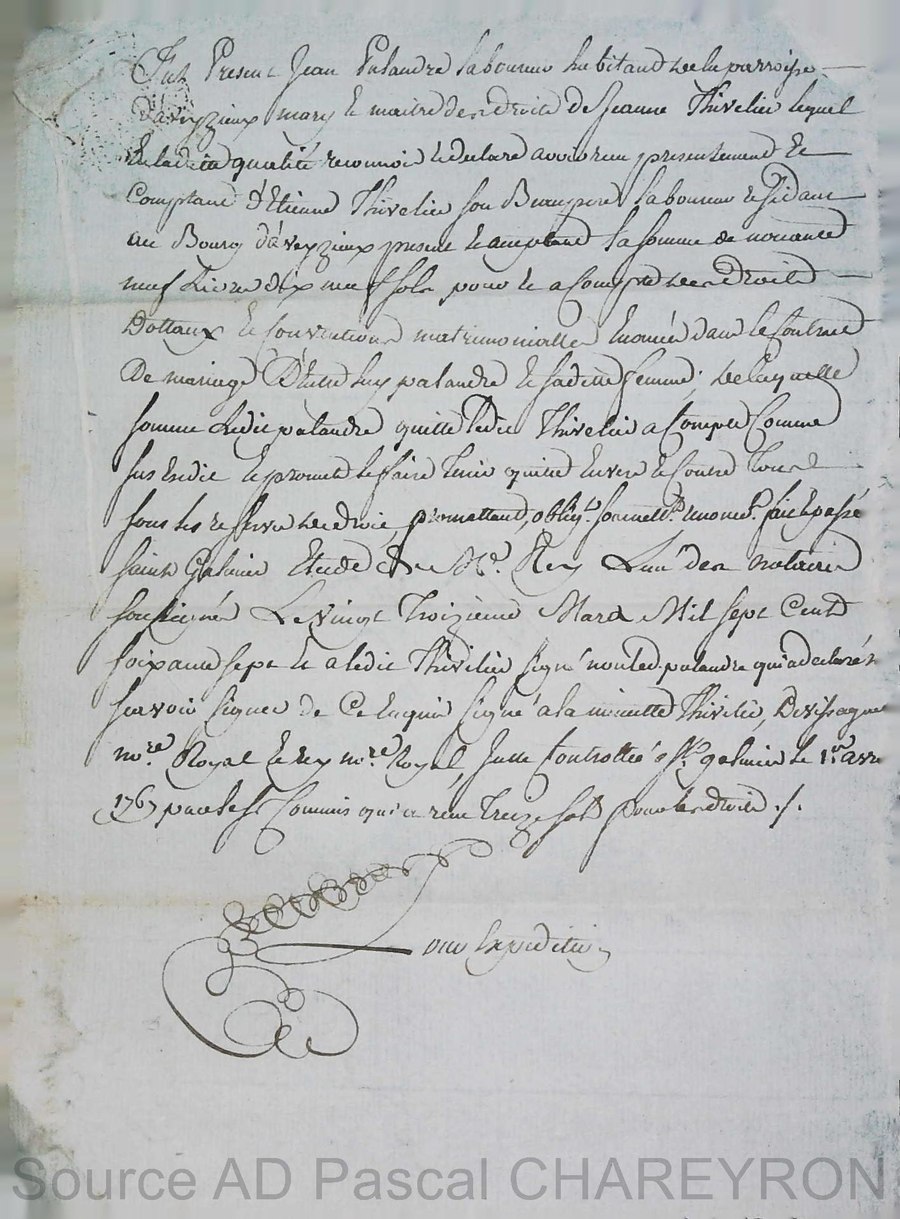 Fut Present Jean Palandre Laboureur habitant de la parroisse
Daveyzieux mary et maitre des droits de Jeanne Thivelier lequel
en ladite qualité reconnoit et declare avoir reçu presentement et
Comptant d'Etienne Thivelier son Beaupere Laboureur residant
au Bourg d'aveyzieux present et acceptant la somme de nonante
neuf Livres dix neuf sols pour et a Compte des droits
Dottaux et Convention matrimonialles Enoncés dans le Contract
De mariage D'Entre luy palandre et saditte femme, de laquelle
somme Ledit palandre quitte ledit Thivelier a Compte Comme
sus Est dit et promet le faire Tenir quitte Envers et Contre Tous
sous les reserves de droit, promettant, oblig.t renonc.t fait et passé
saint Galmier Etude de M.e Rey L'un des notaires
soussignés Le vingt Troizieme Mars Mil sept Cent
soixante sept et a ledit Thivelier signé non led. palandre qui a declaré n
scavoir signer de Ce enquis signé a la minutte Thivelier, Devissaguet
no.re Royal et rey no.re Royal, Juste Controllée a s.t galmier le 1.er avr
1767 par le s.r Commis qui a reçu Treize sols pour les droits ./.
our Expedition
Source AD Pascal CHAREYRON